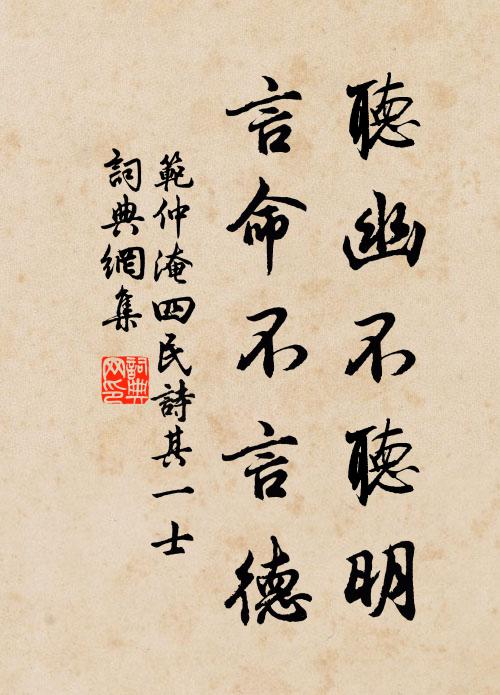 聽幽不聽明
言命不言德
範仲淹四民詩其一士
詞典網集
詞典网印